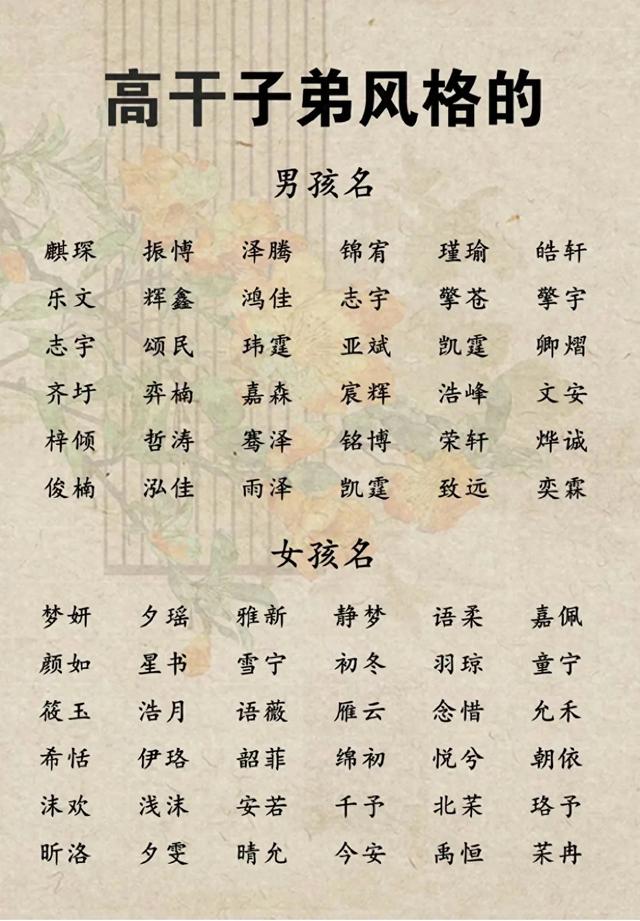 高干子弟风格的
男孩名
麒琛 振博 泽腾 锦宥 瑾瑜 皓轩
乐文 辉鑫 鸿佳 志宇 擎苍 擎宇
志宇 颂民 玮霆 亚斌 凯霆 卿熠
齐圩 弈楠 嘉森 宸辉 浩峰 文安
梓倾 哲涛 骞泽 铭博 荣轩 烨诚
俊楠 泓佳 雨泽 凯霆 致远 奕霖
女孩名
梦妍 夕瑶 雅新 静梦 语柔 嘉佩
颜如 星书 雪宁 初冬 羽琼 童宁
筱玉 浩月 语薇 雁云 念惜 允禾
希恬 伊珞 韶菲 绵初 悦兮 朝依
沫欢 浅沫 安若 千予 北茉 珞予
昕洛 夕雯 晴允 今安 禹恒 茉冉